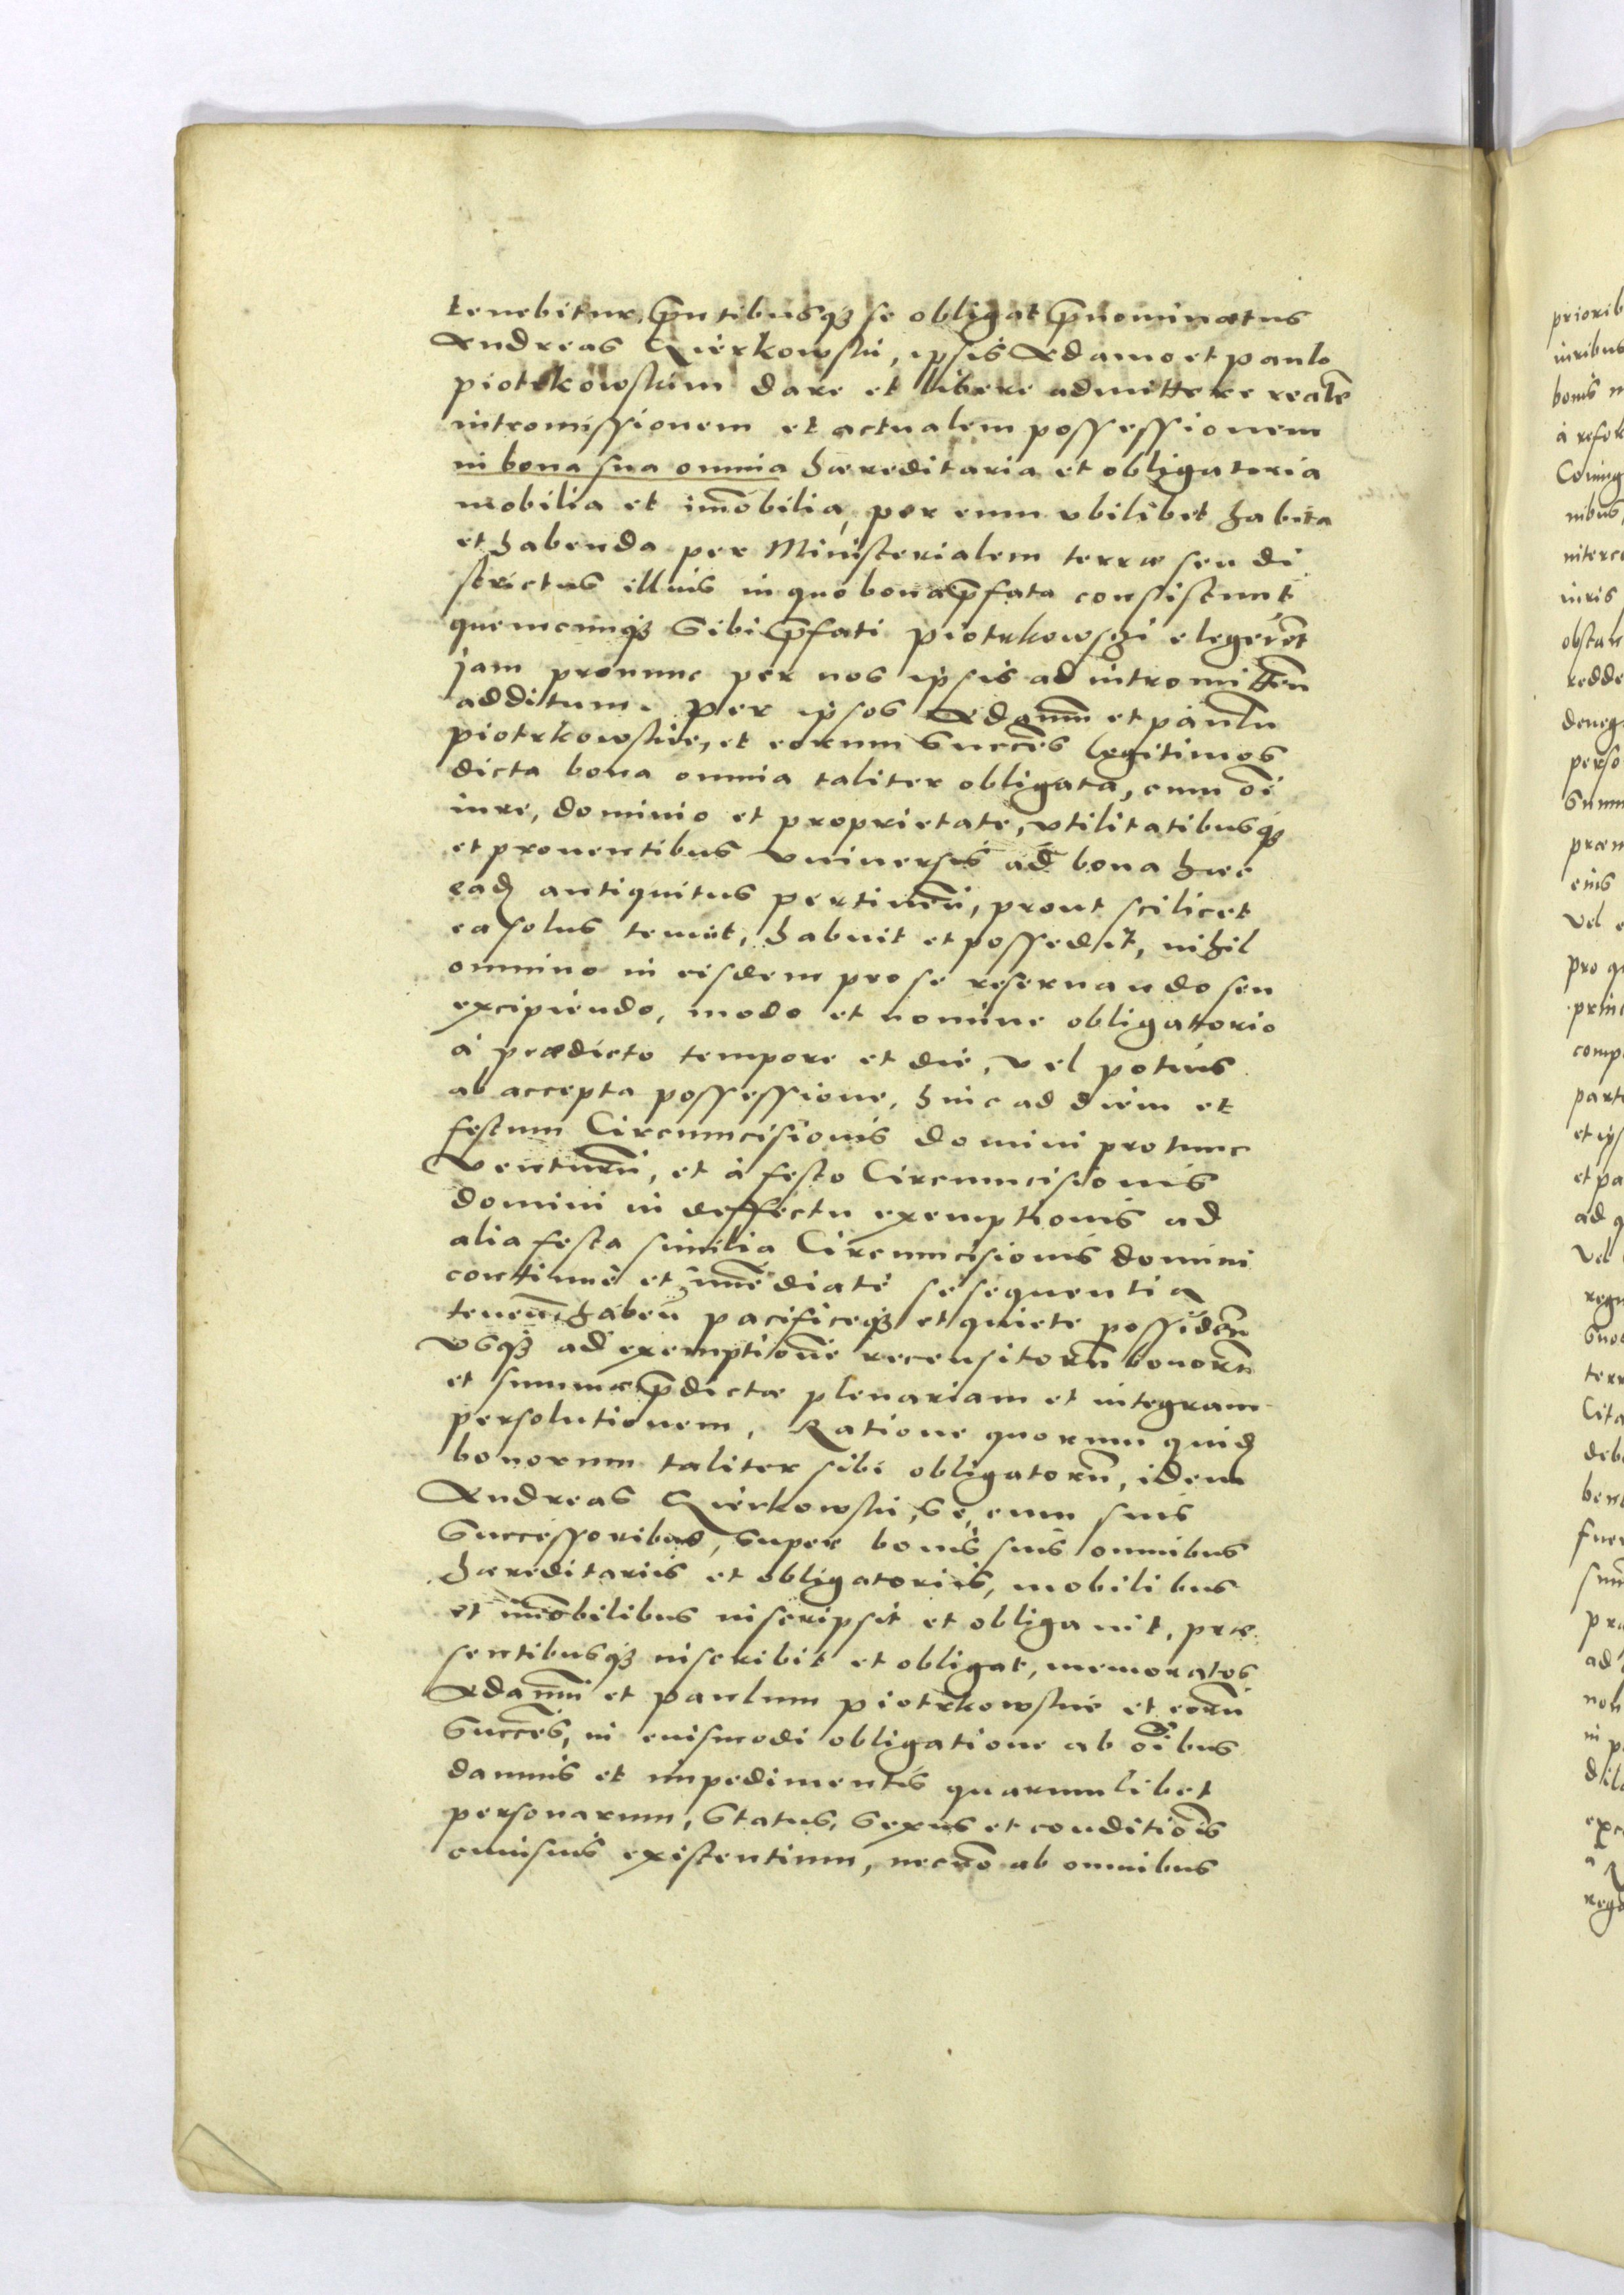 tenebitur, p̄ntibusq₃ se obligat p̄nominatus
Andreas Zierkowski, ipsis Adamo et paulo
piotrkowskim dare et libere admittere realē
intromissionem et actualem possessionem
in bona sua omnia haereditaria et obligatoria
mobilia et im̄obilia, per eum vbilibet habita
et habenda per Ministerialem terrae seu di
strictus illius in quo bona p̄fata consistunt
quemcunq₃ sibi p̄fati piotrkowski elegerint
jam pronunc per nos ipsis ad intromittēn
additum. Per ipsos Adamū et paulū
piotrkowskie, et eorum succēs legitimos
dicta bona omnia taliter obligata, cum oī
iure, dominio et proprietate, vtilitatibusq₃
et prouentibus vniuersis ad bona haec
eadē antiquitus pertinēn, prout scilicet
ea solus tenuit, habuit et possedit, nihil
omnino in eisdem pro se reseruando seu
excipiendo, modo et nomine obligatorio
à praedicto tempore et die, vel potius
ab accepta possessione, hinc ad diem et
festum Circumcisionis domini protunc
venturū, et à festo Circumcisionis
domini in deffectu exemptionis ad
alia festa similia Circumcisionis domini
continuè et im̄ediatè se sequentia
tenēn. habēn pacificeq₃ et quiete possidēn
vsq₃ ad exemptionē recensitorū bonorū
et summae p̄dictae plenariam et integram
persolutionem, Ratione quorum quidē
bonorum taliter sibi obligatorū, idem
Andreas Zierkowski, se, cum suis
successoribus, super bonis suis omnibus
haereditariis et obligatoriis, mobilibus
et im̄obilibus inscripsit et obligauit, prae
sentibusq₃ inscribit et obligat, memoratos
Adamū et paulum piotrkowskie et eorū
succēs, in euismodi obligatione ab oībus
damnis et impedimentis quarumlibet
personarum, status, sexus et conditiōis
cuiusuis existentium, necnō ab omnibus